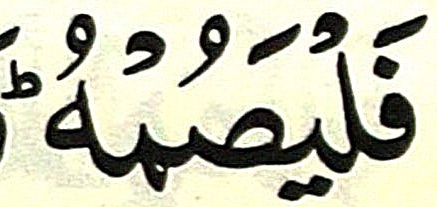 فَلْيَصُمْهُ ؕ